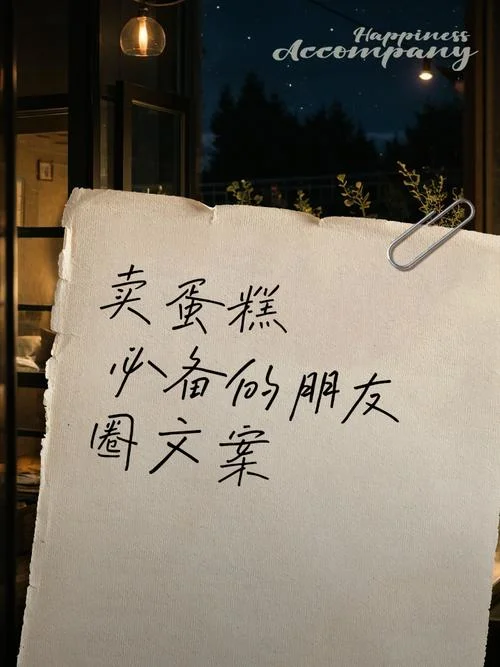 Happiness
Accompany
卖蛋糕
必备的朋友
圈文案